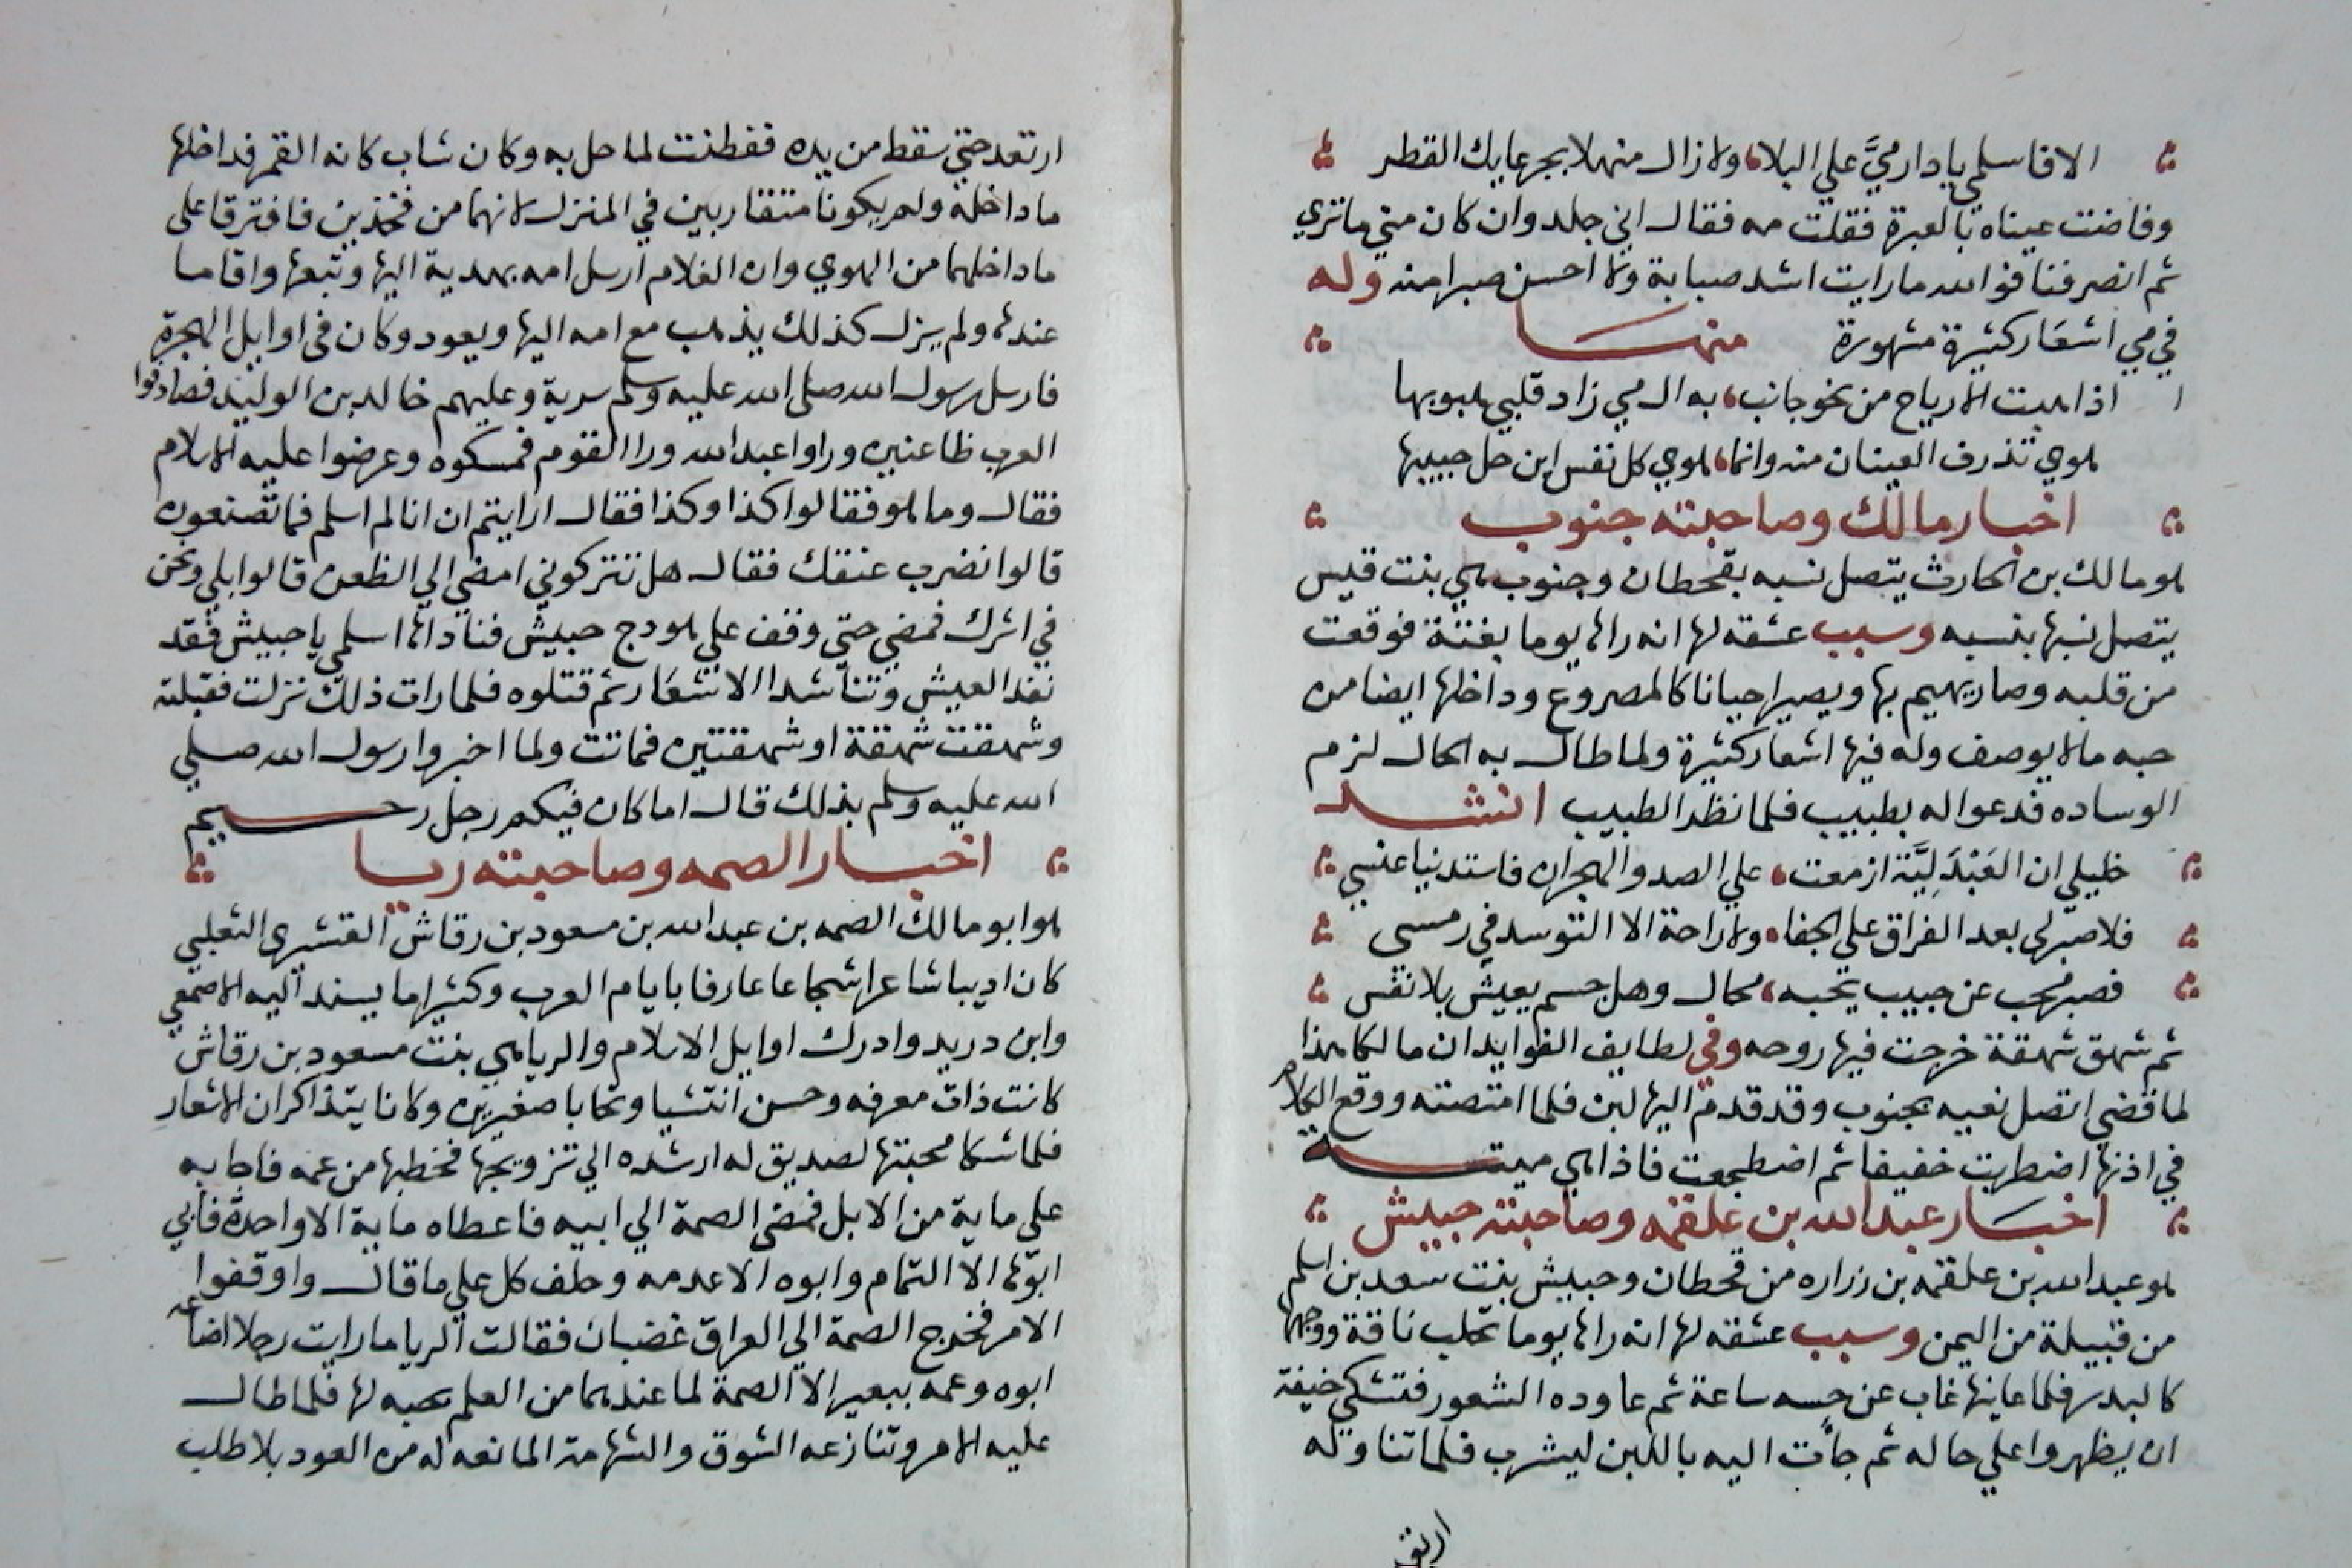 الافاسلمي يا دار ميَّ علي البلا، ولا زال منهلا بجرعايك القطر
وفاضت عيناه بالعبرة فقلت مه فقال اني جلد وان كان مني ما تري
ثم انصرفنا فوالله ما رايت اشد صبابة ولا احسن صبرا منه وله
في مي اشعار كثيرة مشهورة منها
اذا هبت الارياح من نحو جانب، به ال مي زاد قلبي هبوبها
هوي تذرف العينان منه وانما، هوي كل نفس اين حل حبيبها
اخبار مالك وصاحبته جنوب
هو مالك بن الحارث يتصل نسبه بقحطان وجنوب هي بنت قيس
يتصل نسبها بنسبه وسبب عشقه لها انه راها يوما بغتة فوقعت
من قلبه وصار يهيم بها ويصير احيانا كالمصروع وداخلها ايضا من
حبه مالا يوصف وله فيها اشعار كثيرة ولما طال به الحال لزم
الوساده فدعوا له بطبيب فلما نظر الطبيب انشد
خليلي ان العَبْدَلِيَّة ازمعت، علي الصد والهجران فاستدنيا عنسي
فلا صبر لي بعد الفراق علي الجفا، ولا راحة الا التوسد في رمسي
فصبر محب عن حبيب يحبه، محال وهل جسم يعيش بلا نفس
ثم شهق شهقة خرجت فيها روحه وفي لطايف الفوايد ان مالكا هذا
لما قضي اتصل نعيه بجنوب وقد قدم اليها لبن فلما امتصته ووقع الكلام
في اذنها اضطربت خفيفا ثم اضطجعت فاذا هي ميتة
اخبار عبدالله بن علقمه وصاحبته حبيش
هو عبدالله بن علقمه بن زراره من قحطان وحبيش بنت سعد بن اسلم
من قبيلة من اليمن وسبب عشقه لها انه راها يوما تحلب ناقة ووجهها
كالبدر فلما عاينها غاب عن حسه ساعة ثم عاوده الشعور فتشكي خيفة
ان يظهروا علي حاله ثم جأت اليه باللبن ليشرب فلما تناوله
ارتعد
ارتعد حتي سقط من يده ففطنت لما حل به وكان شاب كانه القمر فداخلها
ما داخله ولم يكونا متقاربين في المنزل لانهما من فخذين فافترقا علي
ما داخلهما من الهوي وان الغلام ارسل امه بهدية اليها وتبعها واقاما
عندها ولم يزل كذلك يذهب مع امه اليها ويعود وكان في اوايل الهجرة
فارسل رسول الله صلي الله عليه وسلم سرية وعليهم خالد بن الوليد فصادفوا
العرب ظاعنين وراوا عبدالله ورا القوم فمسكوه وعرضوا عليه الاسلام
فقال وما هو فقالوا كذا وكذا فقال ارايتم ان انا لم اسلم فما تصنعون
قالوا نضرب عنقك فقال هل تتركوني امضي الي الظعن قالوا بلي ونحن
في اثرك فمضي حتي وقف علي هودج حبيش فناداها اسلمي يا حبيش فقد
نفد العيش وتناشدا الاشعار ثم قتلوه فلما رات ذلك نزلت فقبلته
وشهقت شهقة او شهقتين فماتت ولما اخبروا رسول الله صلي
الله عليه وسلم بذلك قال اما كان فيكم رجل رحيم
اخبار الصمه وصاحبته ريا
هو ابو مالك الصمه بن عبدالله بن مسعود بن رقاش القشري التغلبي
كان اديبا شاعرا شجاعا عارفا بايام العرب وكثيرا ما يسند اليه الاصمعي
وابن دريد وادرك اوايل الاسلام والريا هي بنت مسعود بن رقاش
كانت ذات معرفه وحسن انتشيا وتحابا صغيرين وكانا يتذاكران الاشعار
فلما شكا محبتها لصديق له ارشده الي تزويجها فخطبها من عمه فاجابه
علي ماية من الابل فمضي الصمة الي ابيه فاعطاه ماية الا واحدة فابي
ابوها الا التمام وابوه الا عدمه وحلف كل علي ما قال واوقفوا
الامر فخرج الصمة الي العراق غضبان فقالت الريا ما رايت رجلا اضاعه
ابوه وعمه ببعير الا الصمة لما عندهما من العلم بحبه لها فلما طال
عليه الامر وتنازعه الشوق والشهامة المانعه له من العود بلا طلب